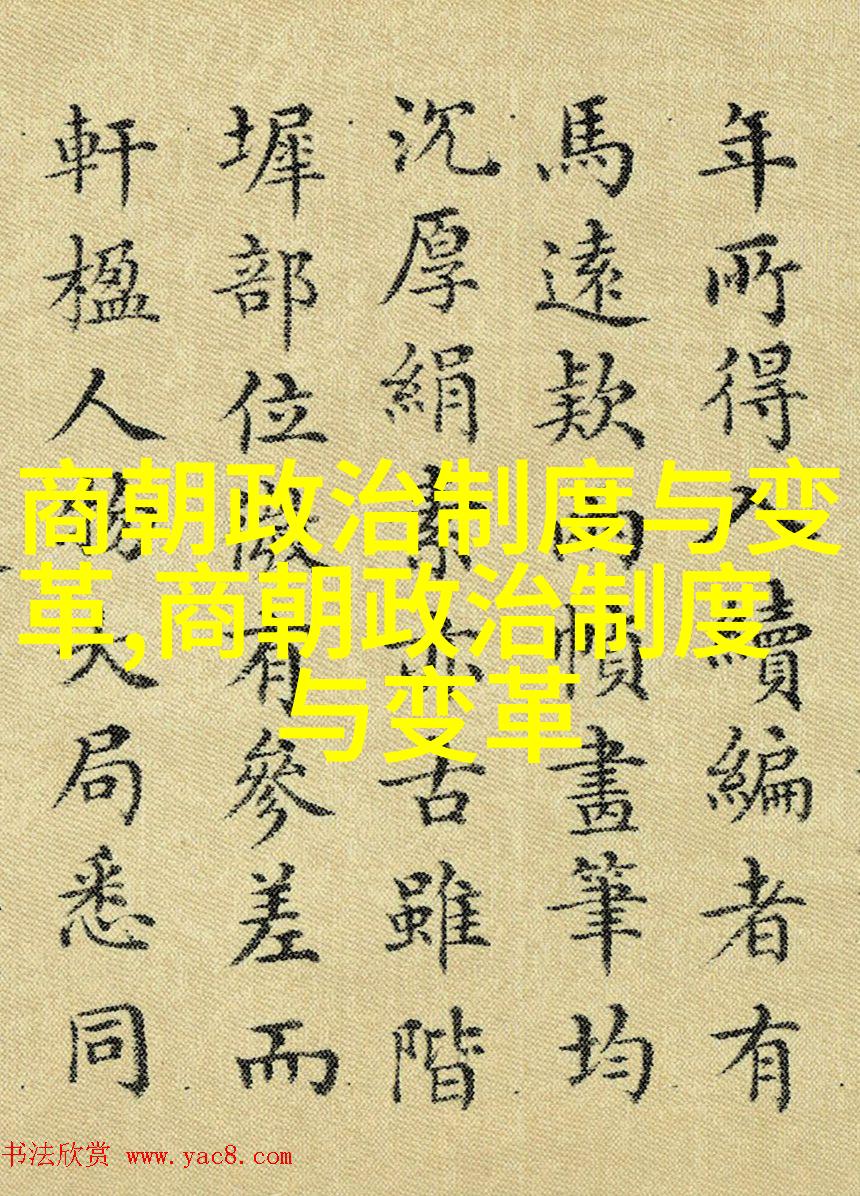 年所得入續編者有
馬遠款兩幀畫筆均
沉厚絹素亦古雖階
墀部位微有參差而
軒楹人物大局悉同
商朝政治制度与变
革,商朝政治制度
与变革
书法欣赏 www.yac8.com